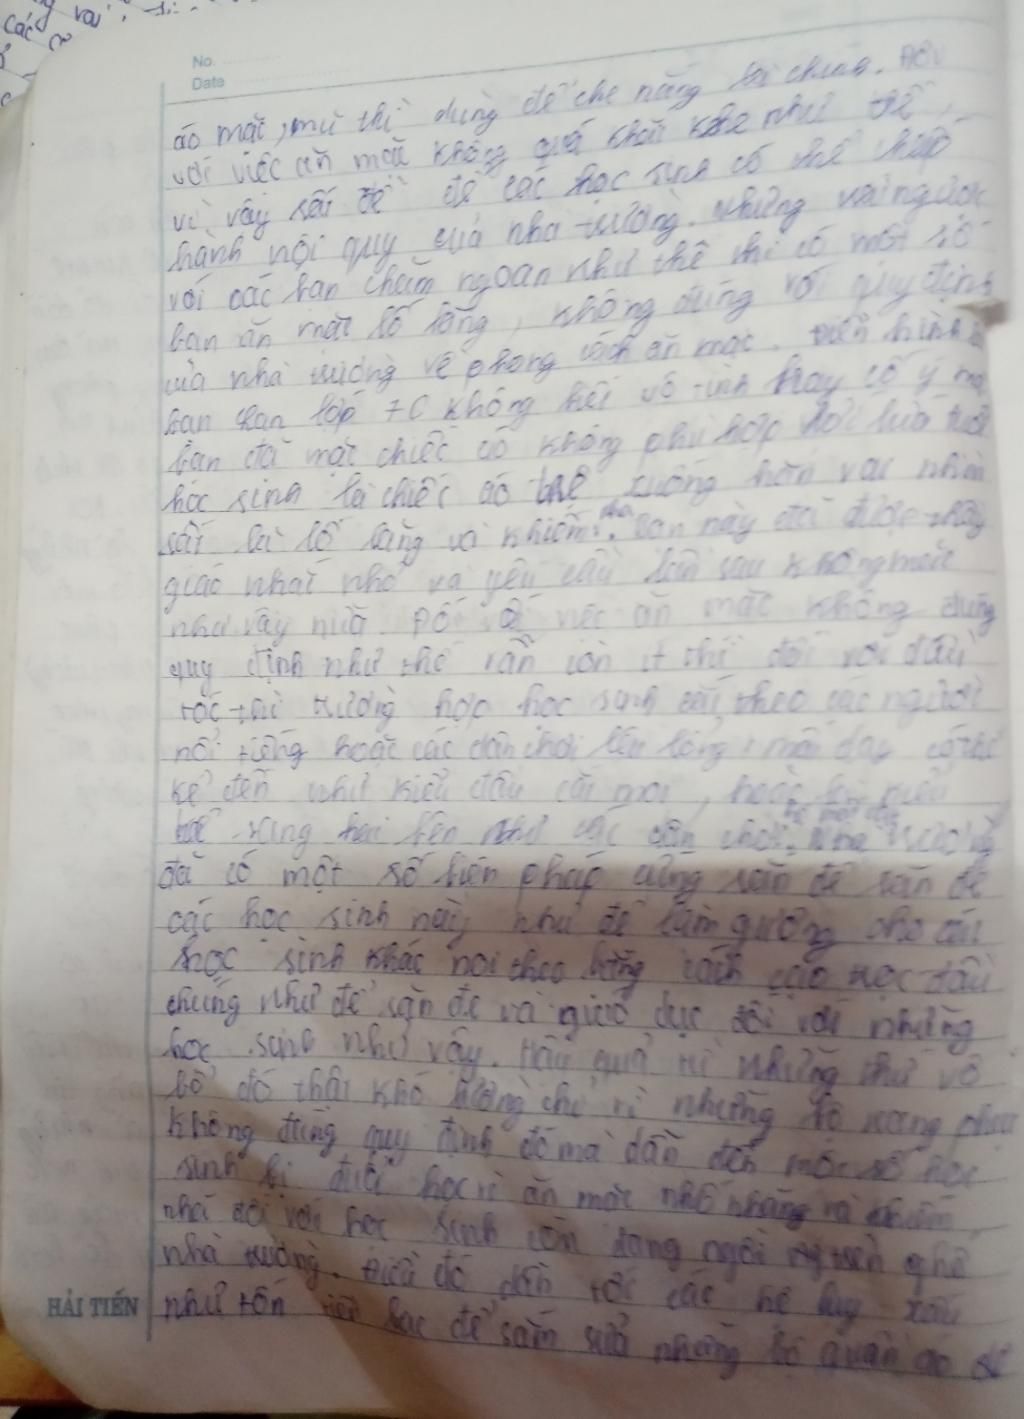 No.
Date
áo mặc, mũ thì dùng để che nắng là chính. Đối
với việc ăn mặc không quá khắt khe như thế,
vì vậy rất dễ để các học sinh có thể chấp
hành nội quy của nhà trường. Nhưng trái ngược
với các bạn chăm ngoan như thế thì có một số
bạn ăn mặc lố lăng, không đúng với quy định
của nhà trường về phong cách ăn mặc. Điển hình
bạn lớp 7C không biết vô tình hay cố ý mà
bạn đã mặc chiếc áo không phù hợp với lứa tuổi
học sinh là chiếc áo trễ xuống hẳn vai nhìn
rất là lố lăng và khiếm nhã. Bạn này đã được thầy
giáo nhắc nhở và yêu cầu lần sau không mặc
như vậy nữa. Đối với việc ăn mặc không đúng
quy định như thế vẫn còn ít thì đối với đầu
tóc thì trường hợp học sinh cắt theo các người
nổi tiếng hoặc các dân chơi lêu lổng, mới đây có thể
kể đến như kiểu đầu cắt moi, hoặc
sang hai bên như các dân chơi. Nhà trường
đã có một số biện pháp cứng rắn để răn đe
các học sinh này như để làm gương cho các
học sinh khác noi theo bằng cách cạo trọc đầu
chúng như để răn đe và giáo dục đối với những
học sinh như vậy. Hậu quả từ những thứ vô
bổ đó thật khó lường chỉ vì những bộ trang phục
không đúng quy định đó mà dẫn đến một số học
sinh bị đuổi học vì ăn mặc nhố nhăng và khiếm
nhã đối với học sinh còn đang ngồi trên ghế
nhà trường. Điều đó dẫn tới các hệ lụy xấu
HẢI TIẾN như tốn tiền bạc để sắm sửa những bộ quần áo